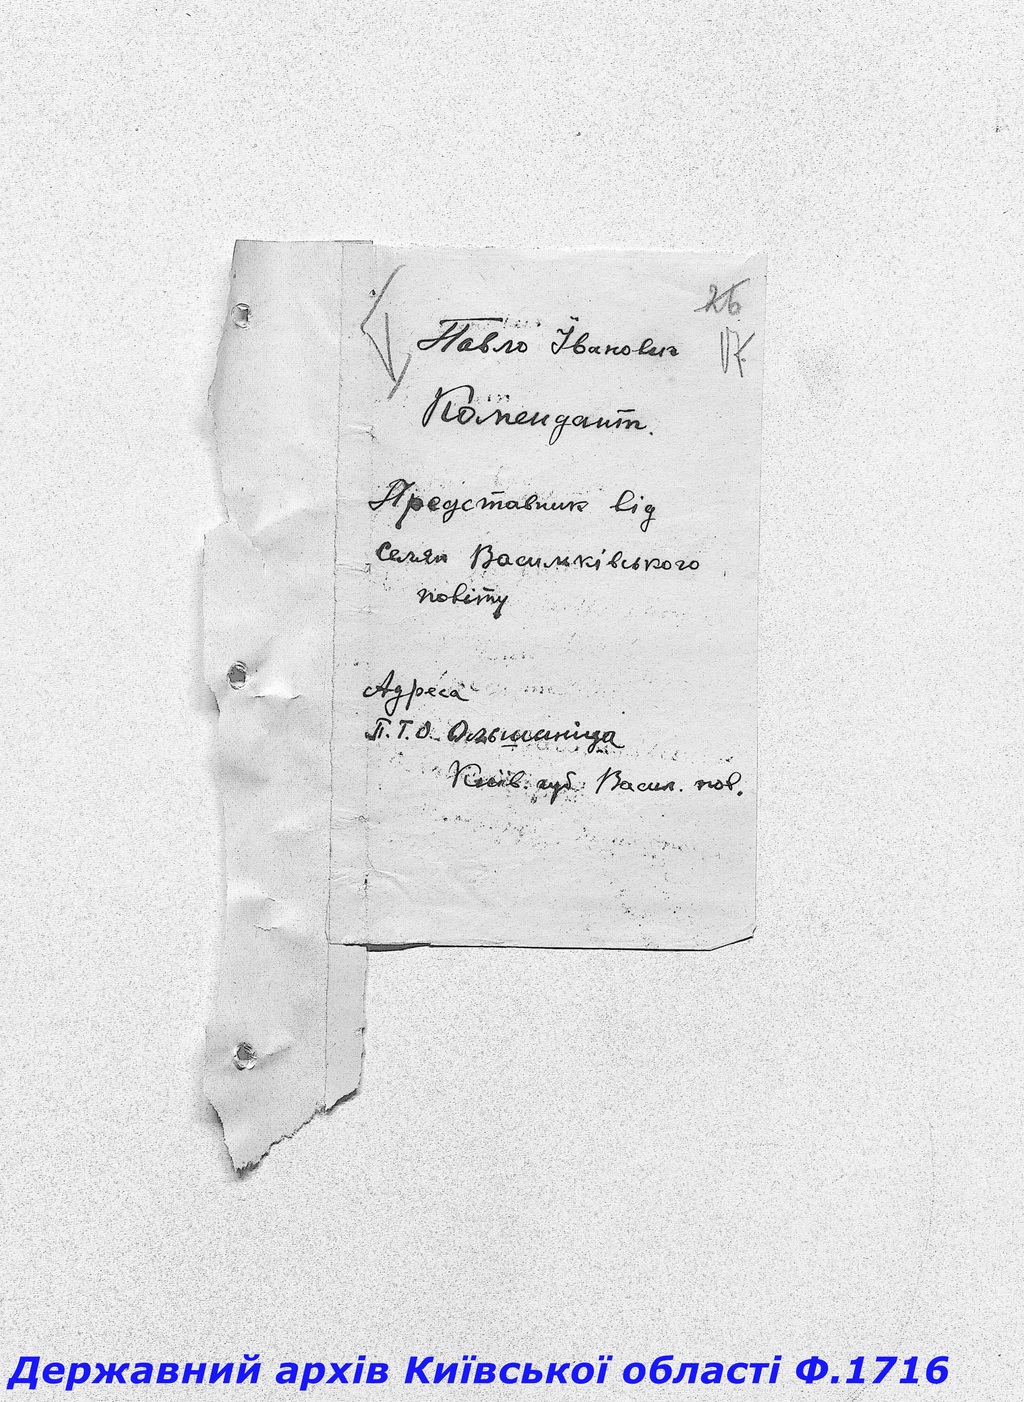 26
17
Павло Іванович
Комендант.
Представник від
селян Васильківського
повіту
Адреса
П.Т.О. Ольшаніца
Київ. губ. Васил. пов.
Державний архів Київської області Ф.1716